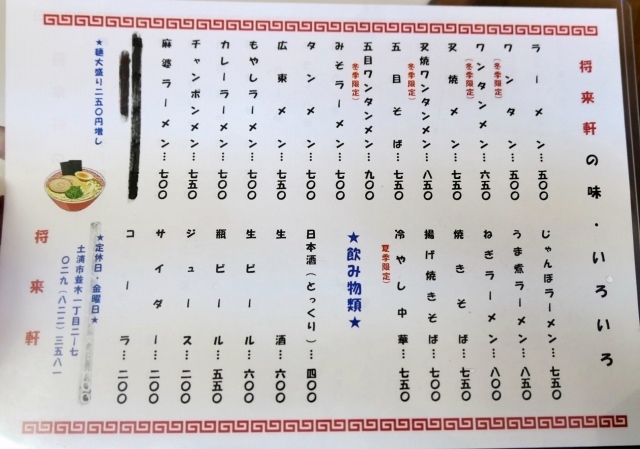 将来軒の味・いろいろ
ラーメン…五〇〇
ワンタン…五〇〇
(冬季限定)
ワンタンメン…六五〇
(冬季限定)
叉焼メン…七五〇
叉焼ワンタンメン…八五〇
(冬季限定)
五目そば…七五〇
五目ワンタンメン…九〇〇
(冬季限定)
みそラーメン…七〇〇
タンメン…七〇〇
広東メン…七五〇
もやしラーメン…七〇〇
カレーラーメン…七〇〇
チャンポンメン…七五〇
麻婆ラーメン…七〇〇
★麺大盛り二五〇円増し
じゃんぼラーメン…七五〇
うま煮ラーメン…八五〇
ねぎラーメン…八〇〇
焼きそば…七五〇
揚げ焼きそば…七〇〇
冷やし中華…七五〇
夏季限定)
★飲み物類★
日本酒(とっくり)…四〇〇
生酒…六〇〇
生ビール…六〇〇
瓶ビール…五五〇
ジュース…二〇〇
サイダー…二〇〇
コーラ…二〇〇
★定休日・金曜日★
土浦市並木一丁目二ー七
〇二九(八二二)三五八一
将来軒